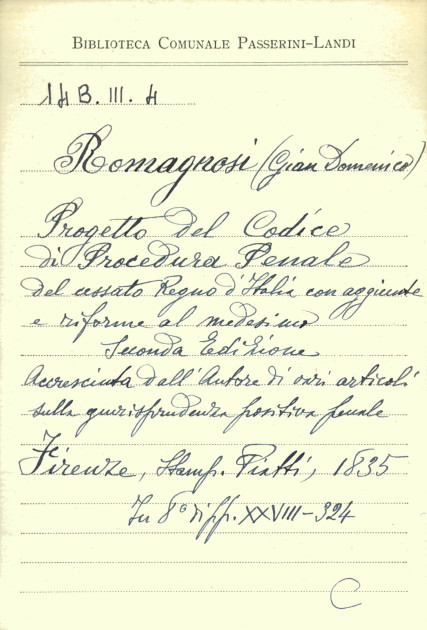 BIBLIOTECA COMUNALE PASSERINI-LANDI
14 B. III. 4
Romagnosi (Gian Domenico)
Progetto del Codice
di Procedura Penale
del cessato Regno d'Italia con aggiunte
e riforme al medesimo
Seconda Edizione
Accresciuta dall'Autore di vari articoli
sulla giurisprudenza positiva penale
Firenze, Stamp. Piatti, 1835
In 8º di pp. XXVIII-324
C